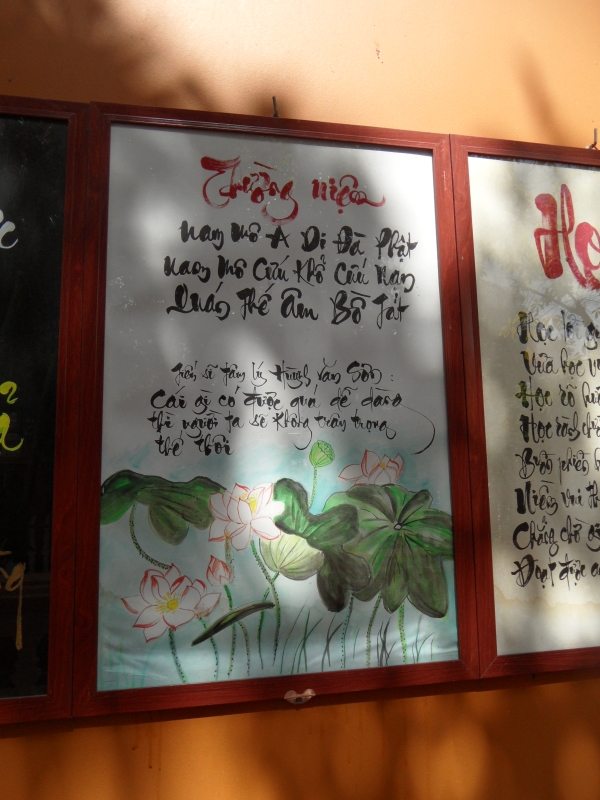 Thường niệm
Nam Mô A Di Đà Phật
Nam Mô Cứu Khổ Cứu Nạn
Quán Thế Âm Bồ Tát
Tiến sĩ tâm lý Huỳnh Văn Sơn:
Cái gì có được quá dễ dàng
thì người ta sẽ không trân trọng
thế thôi
Học
Vừa học
Học
Học
Niềm vui
Chẳng
Đoạt được